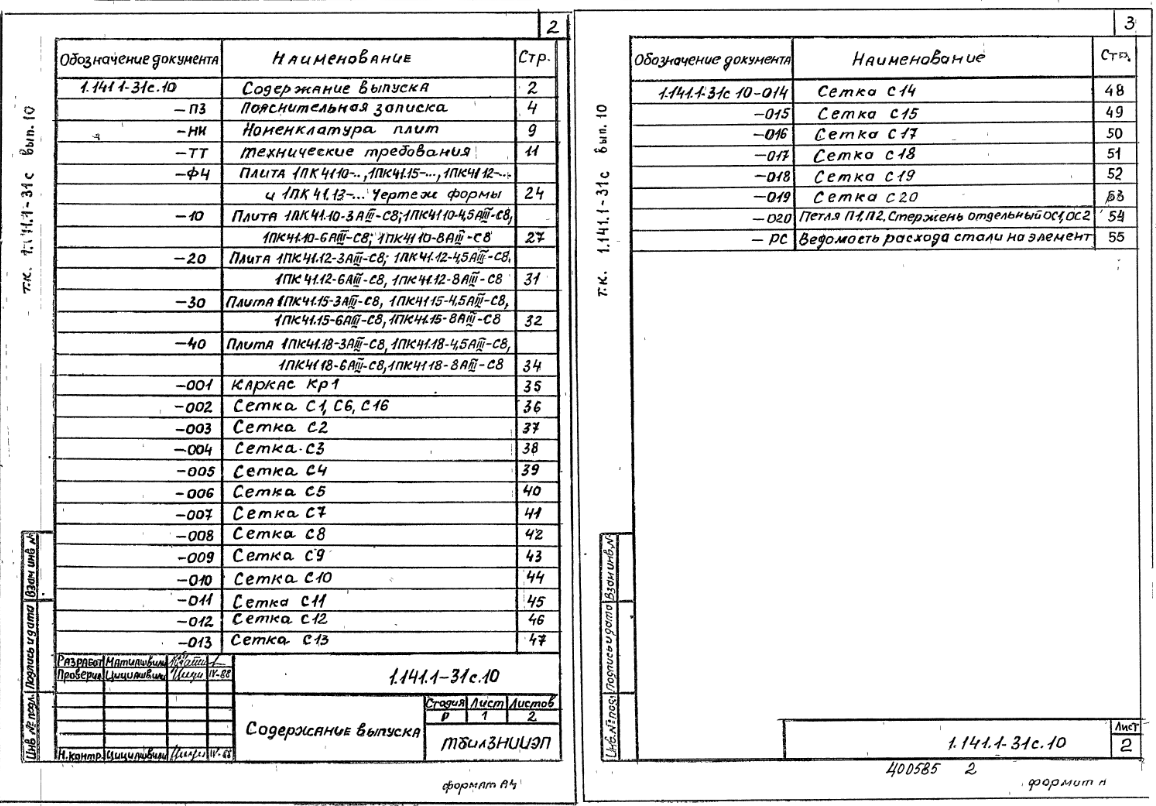 2
Обозначение документа Наименование Стр.
1.141.1-31с.10 Содержание выпуска 2
-ПЗ Пояснительная записка 4
-НИ Номенклатура плит 9
-ТТ Технические требования 11
-ФЧ Плита 1ПК41.10-..,1ПК41.15-...,1ПК41.12-...
и 1ПК 41.13-... Чертеж формы 24
-10 Плита 1ПК41.10-3АIII-С8; 1ПК41.10-4,5АIII-С8,
1ПК41.10-6АIII-С8; 1ПК41.10-8АIII-С8 27
-20 Плита 1ПК41.12-3АIII-С8; 1ПК41.12-4,5АIII-С8,
1ПК41.12-6АIII-С8, 1ПК41.12-8АIII-С8 31
-30 Плита 1ПК41.15-3АIII-С8, 1ПК41.15-4,5АIII-С8,
1ПК41.15-6АIII-С8, 1ПК41.15-8АIII-С8 32
-40 Плита 1ПК41.18-3АIII-С8, 1ПК41.18-4,5АIII-С8,
1ПК41.18-6АIII-С8, 1ПК41.18-8АIII-С8 34
-001 Каркас Кр1 35
-002 Сетка С1, С6, С16 36
-003 Сетка С2 37
-004 Сетка С3 38
-005 Сетка С4 39
-006 Сетка С5 40
-007 Сетка С7 41
-008 Сетка С8 42
-009 Сетка С9 43
-010 Сетка С10 44
-011 Сетка С11 45
-012 Сетка С12 46
-013 Сетка С13 47
Т.К. 1.141.1-31с вып. 10
Инв. № подл. Подпись и дата Взам инв №
Разработ Матиашвили
Проверил Цицишвили IV-88
Н.контр. Цицишвили IV-88
1.141.1-31с.10
Содержание выпуска
Стадия Лист Листов
Р 1 2
ТбилЗНИИЭП
формат А4
3
Обозначение документа Наименование Стр.
1.141.1-31с 10-014 Сетка С14 48
-015 Сетка С15 49
-016 Сетка С17 50
-017 Сетка С18 51
-018 Сетка С19 52
-019 Сетка С20 53
-020 Петля П1,П2, Стержень отдельный ОС1, ОС2 54
-РС Ведомость расхода стали на элемент 55
Т.К. 1.141.1-31с вып. 10
Инв. № подл. Подпись и дата Взам инв. №
1.141.1-31с.10
Лист
2
400585 2
формат А